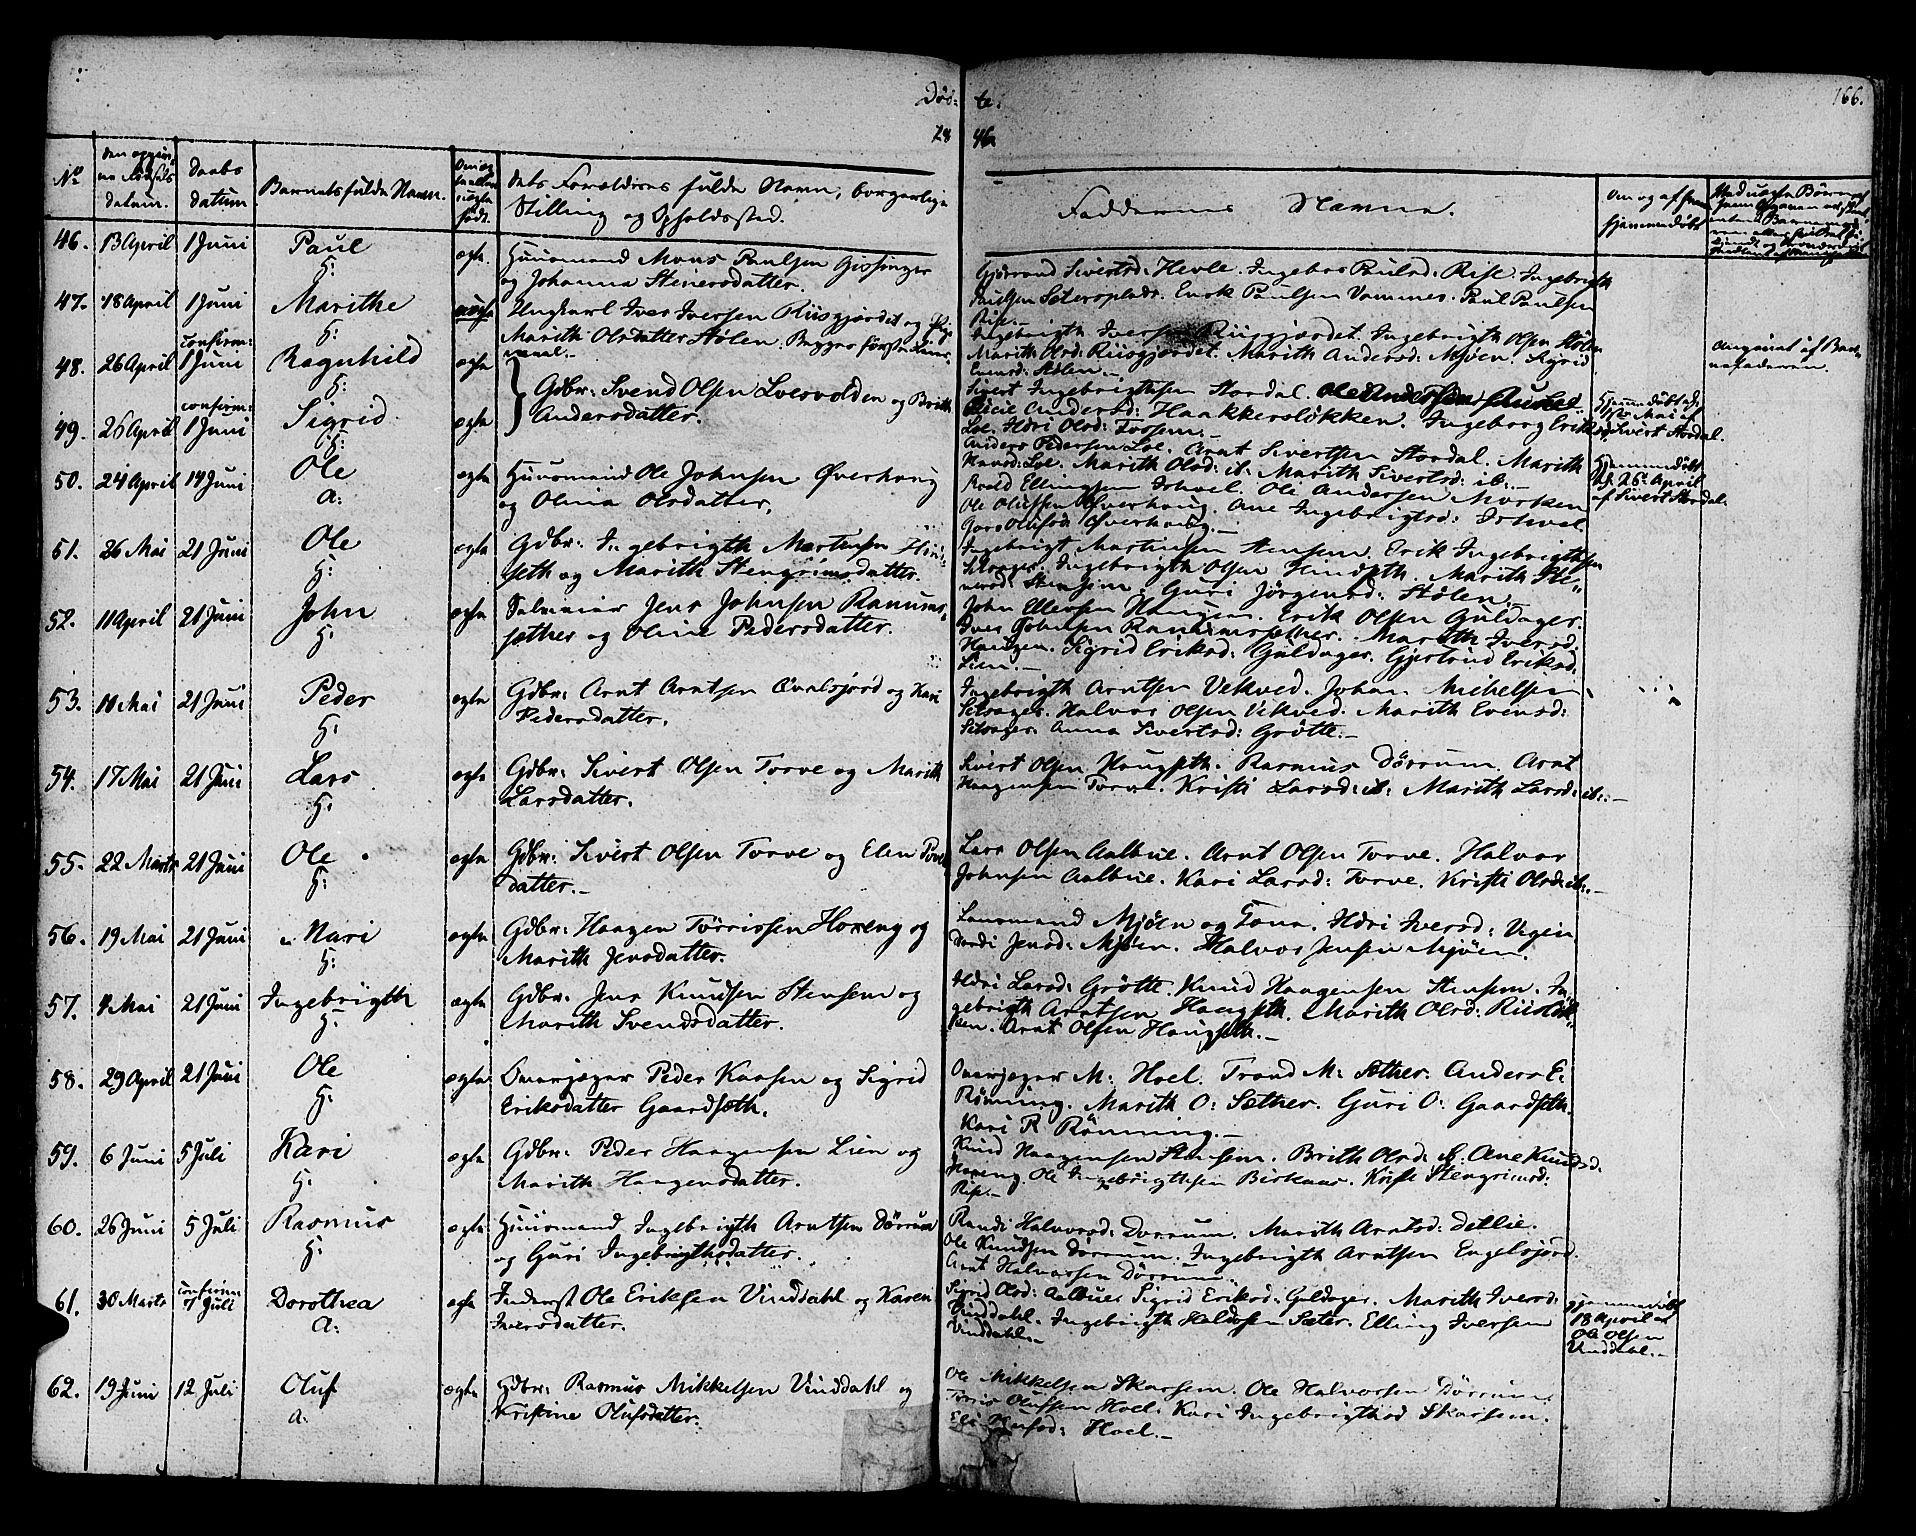 Døb- te.
166.
18 46.
No
Daabs datum
Barnets fulde Navn.
dets Forældres fulde Navn, borgerlige Stilling og Opholdssted.
Faddernes Navne.
46. 13 April 1 Juni Paul H: ægte Huusmand Mons Paulsen Gissinger og Johanna Steinersdatter.
Ingebor Paulsd: Rise. Ingebrigth
Paulsen Seteroplads. Enok Paulsen Vammes. Paul Paulsen
Rise.
47. 18 April 1 Juni Marithe H: uægte Ungkarl Iver Iversen Riisgjærdet og Pige
Marith Olsdatter Stølen. Begges første Leier-
maal.
Ingebrigth Iversen Riisgjærdet. Ingebrigth Olsen Stølen
Marith Olsd: Riisgjærdet. Marith Andersd: Mjøen. Sigrid
Evensd: Stølen.
Angivet af Bar-
nefaderen.
48. 26 April confirm: 1 Juni Ragnhild H: ægte
Gdbr: Svend Olsen Loevolden og Brith
Andersdatter.
Sivert Ingebrigthsen Stordal.
Andersd: Haakkersløkken. Ingeborg Eriksd:
Loe. Ildri Olsd: Fossem.
Hjemmedøbt
Mai af
Sivert Stordal.
49. 26 April confirm: 1 Juni Sigrid H: ægte
Anders Pedersen Loe. Arnt Sivertsen Stordal. Marith
Loe. Marith Olsd: ib: Marith Sivertsd: ib:
Hjemmedøbt
d. 26 April
af Sivert Stordal.
50. 24 April 14 Juni Ole A: ægte Huusmand Ole Johnsen Øverhaug
og Olina Olsdatter.
Ellingsen Ishoel. Ole Andersen Morken
Ole Olufsen Øverhaug. Ane Ingebrigtsd: Ishoel
Olufsd: Øverhaug.
51. 26 Mai 21 Juni Ole H: ægte Gdbr: Ingebrigth Martinsen Hind-
seth og Marith Stengrimsdatter.
Ingebrigt Martinsen Stensem. Erik Ingebrigthsen
Setrager. Ingebrigth Olsen Hindseth. Marith Ste-
nersd: Stensem. Guri Jørgensd: Stølen.
52. 11 April 21 Juni John H: ægte Selveier Jens Johnsen Ranums-
sether og Oline Pedersdatter.
John Ellevsen Haugen. Erik Olsen Guldager.
Iver Johnsen Ranumssether. Marith Iversd:
Haugen. Sigrid Eriksd: Guldager. Gjertrud Eriksd:
Lien.
53. 10 Mai 21 Juni Peder H: ægte Gdbr: Arnt Arntsen Qvalsjord og Kari
Pedersdatter.
Ingebrigth Arntsen Vekved. Johan Michelsen
Setrager. Halvor Olsen Vekved. Marith Evensd:
Setrager. Anna Sivertsd: Grøtte.
54. 17 Mai 21 Juni Lars H: ægte Gdbr: Sivert Olsen Torve og Marith
Larsdatter.
Sivert Olsen Haugseth. Rasmus Dørrum. Arnt
Haagensen Torve. Kristi Larsd: ib: Marith Larsd: ib:
55. 22 Marts 21 Juni Ole H: ægte Gdbr: Sivert Olsen Torve og Elen Povels
datter.
Lars Olsen Aalbue. Arnt Olsen Torve. Halvor
Johnsen Aalbue. Kari Larsd: Torve. Kristi Olsd: ib:
56. 19 Mai 21 Juni Mari H: ægte Gdbr: Haagen Tørrissen Horeng og
Marith Jensdatter.
Lensmand Mjøen og Kone. Ildri Iversd: Vigen
Randi Jensd: Mjøen. Halvor Jensen Mjøen.
57. 4 Mai 21 Juni Ingebrigth H: ægte Gdbr: Jens Knudsen Stensem og
Marith Svendsdatter.
Ildri Larsd: Grøtte. Knud Haagensen Stensem. In-
gebrigth Arntsen Haugseth. Marith Olsd: Riisløk-
ken. Arnt Olsen Haugseth.
58. 29 April 21 Juni Ole H: ægte Overjæger Peder Kaasen og Sigrid
Eriksdatter Gaardseth.
Overjæger M: Hoel. Trond M: Sether. Anders E:
Rønning. Marith O: Sether. Guri O: Gaardseth.
Kari R Rønning.
59. 6 Juni 5 Juli Kari H: ægte Gdbr: Peder Haagensen Lien og
Marith Haagensdatter.
Knud Haagensen Stensem. Brith Olsd: ib. Ane Knudsd:
Horeng. Ole Ingebrigthsen Birkaas. Kristi Stengrimsd:
Rise.
60. 26 Juni 5 Juli Rasmus H: ægte Huusmand Ingebrigth Arntsen Dørrum
og Guri Ingebrigthsdatter.
Randi Halvorsd: Dørrum. Marith Arntsd: Detlie.
Ole Knudsen Dørrum. Ingebrigth Arntsen Engelsjord.
Arnt Halvorsen Dørrum.
61. 30 Marts confirm Juli Dorothea A: ægte Inderst Ole Eriksen Vinddahl og Karen
Iversdatter.
Sigrid Olsd: Aalbue. Sigrid Eriksd: Guldager. Marith Iversd:
Vinddahl. Ingebrigth Haldosen Seter. Elling Iversen
Vinddahl.
Hjemmedøbt
18 April af
Ole Olsen
Vinddahl.
62. 19 Juni 12 Juli Oluf A: ægte Gdbr: Rasmus Mikkelsen Vinddahl og
Kristine Olufsdatter.
Ole Mikkelsen Skarsem. Ole Halvorsen Dørrum.
Tørris Olufsen Hoel. Kari Ingebrigthsd Skarsem.
Eli Olufsd: Hoel.